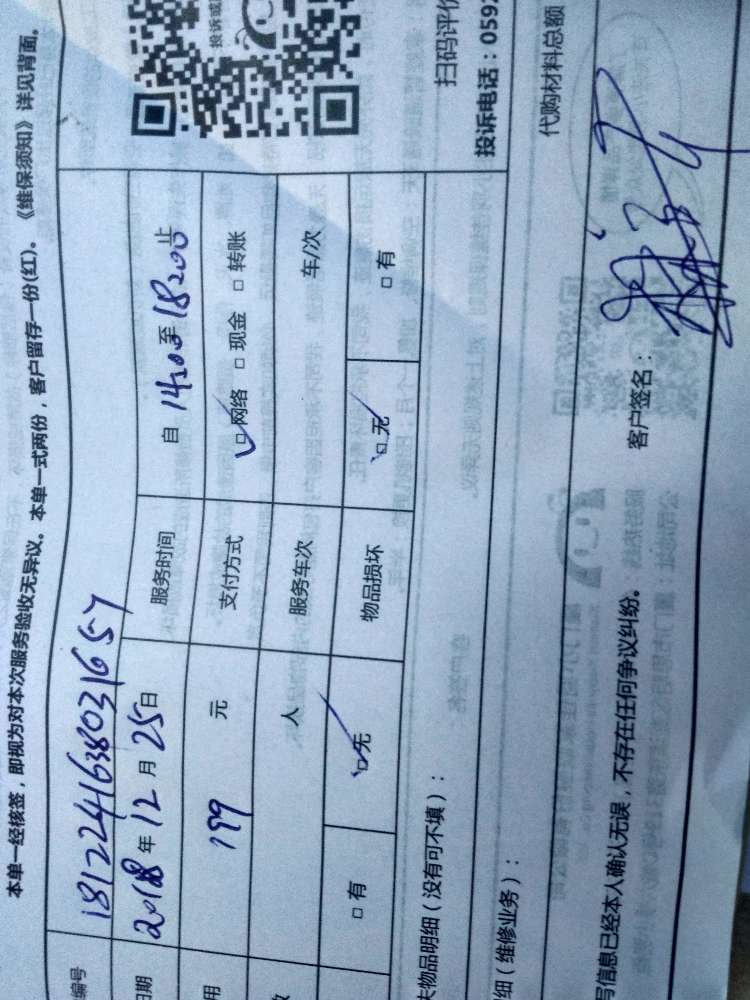 本单一经核签，即视为对本次服务验收无异议。本单一式两份，客户留存一份(红)。《维保须知》详见背面。
编号 1812241638031657
日期 2018 年 12 月 25 日 服务时间 自 14:00 至 18:00 止
用 199 元 支付方式 □网络 □现金 □转账
人 服务车次 车/次
□有 □无 物品损坏 □无 □有
投诉
扫码评价
投诉电话：059
失物品明细（没有可不填）：
细（维修业务）： 代购材料总额
写信息已经本人确认无误，不存在任何争议纠纷。 客户签名：